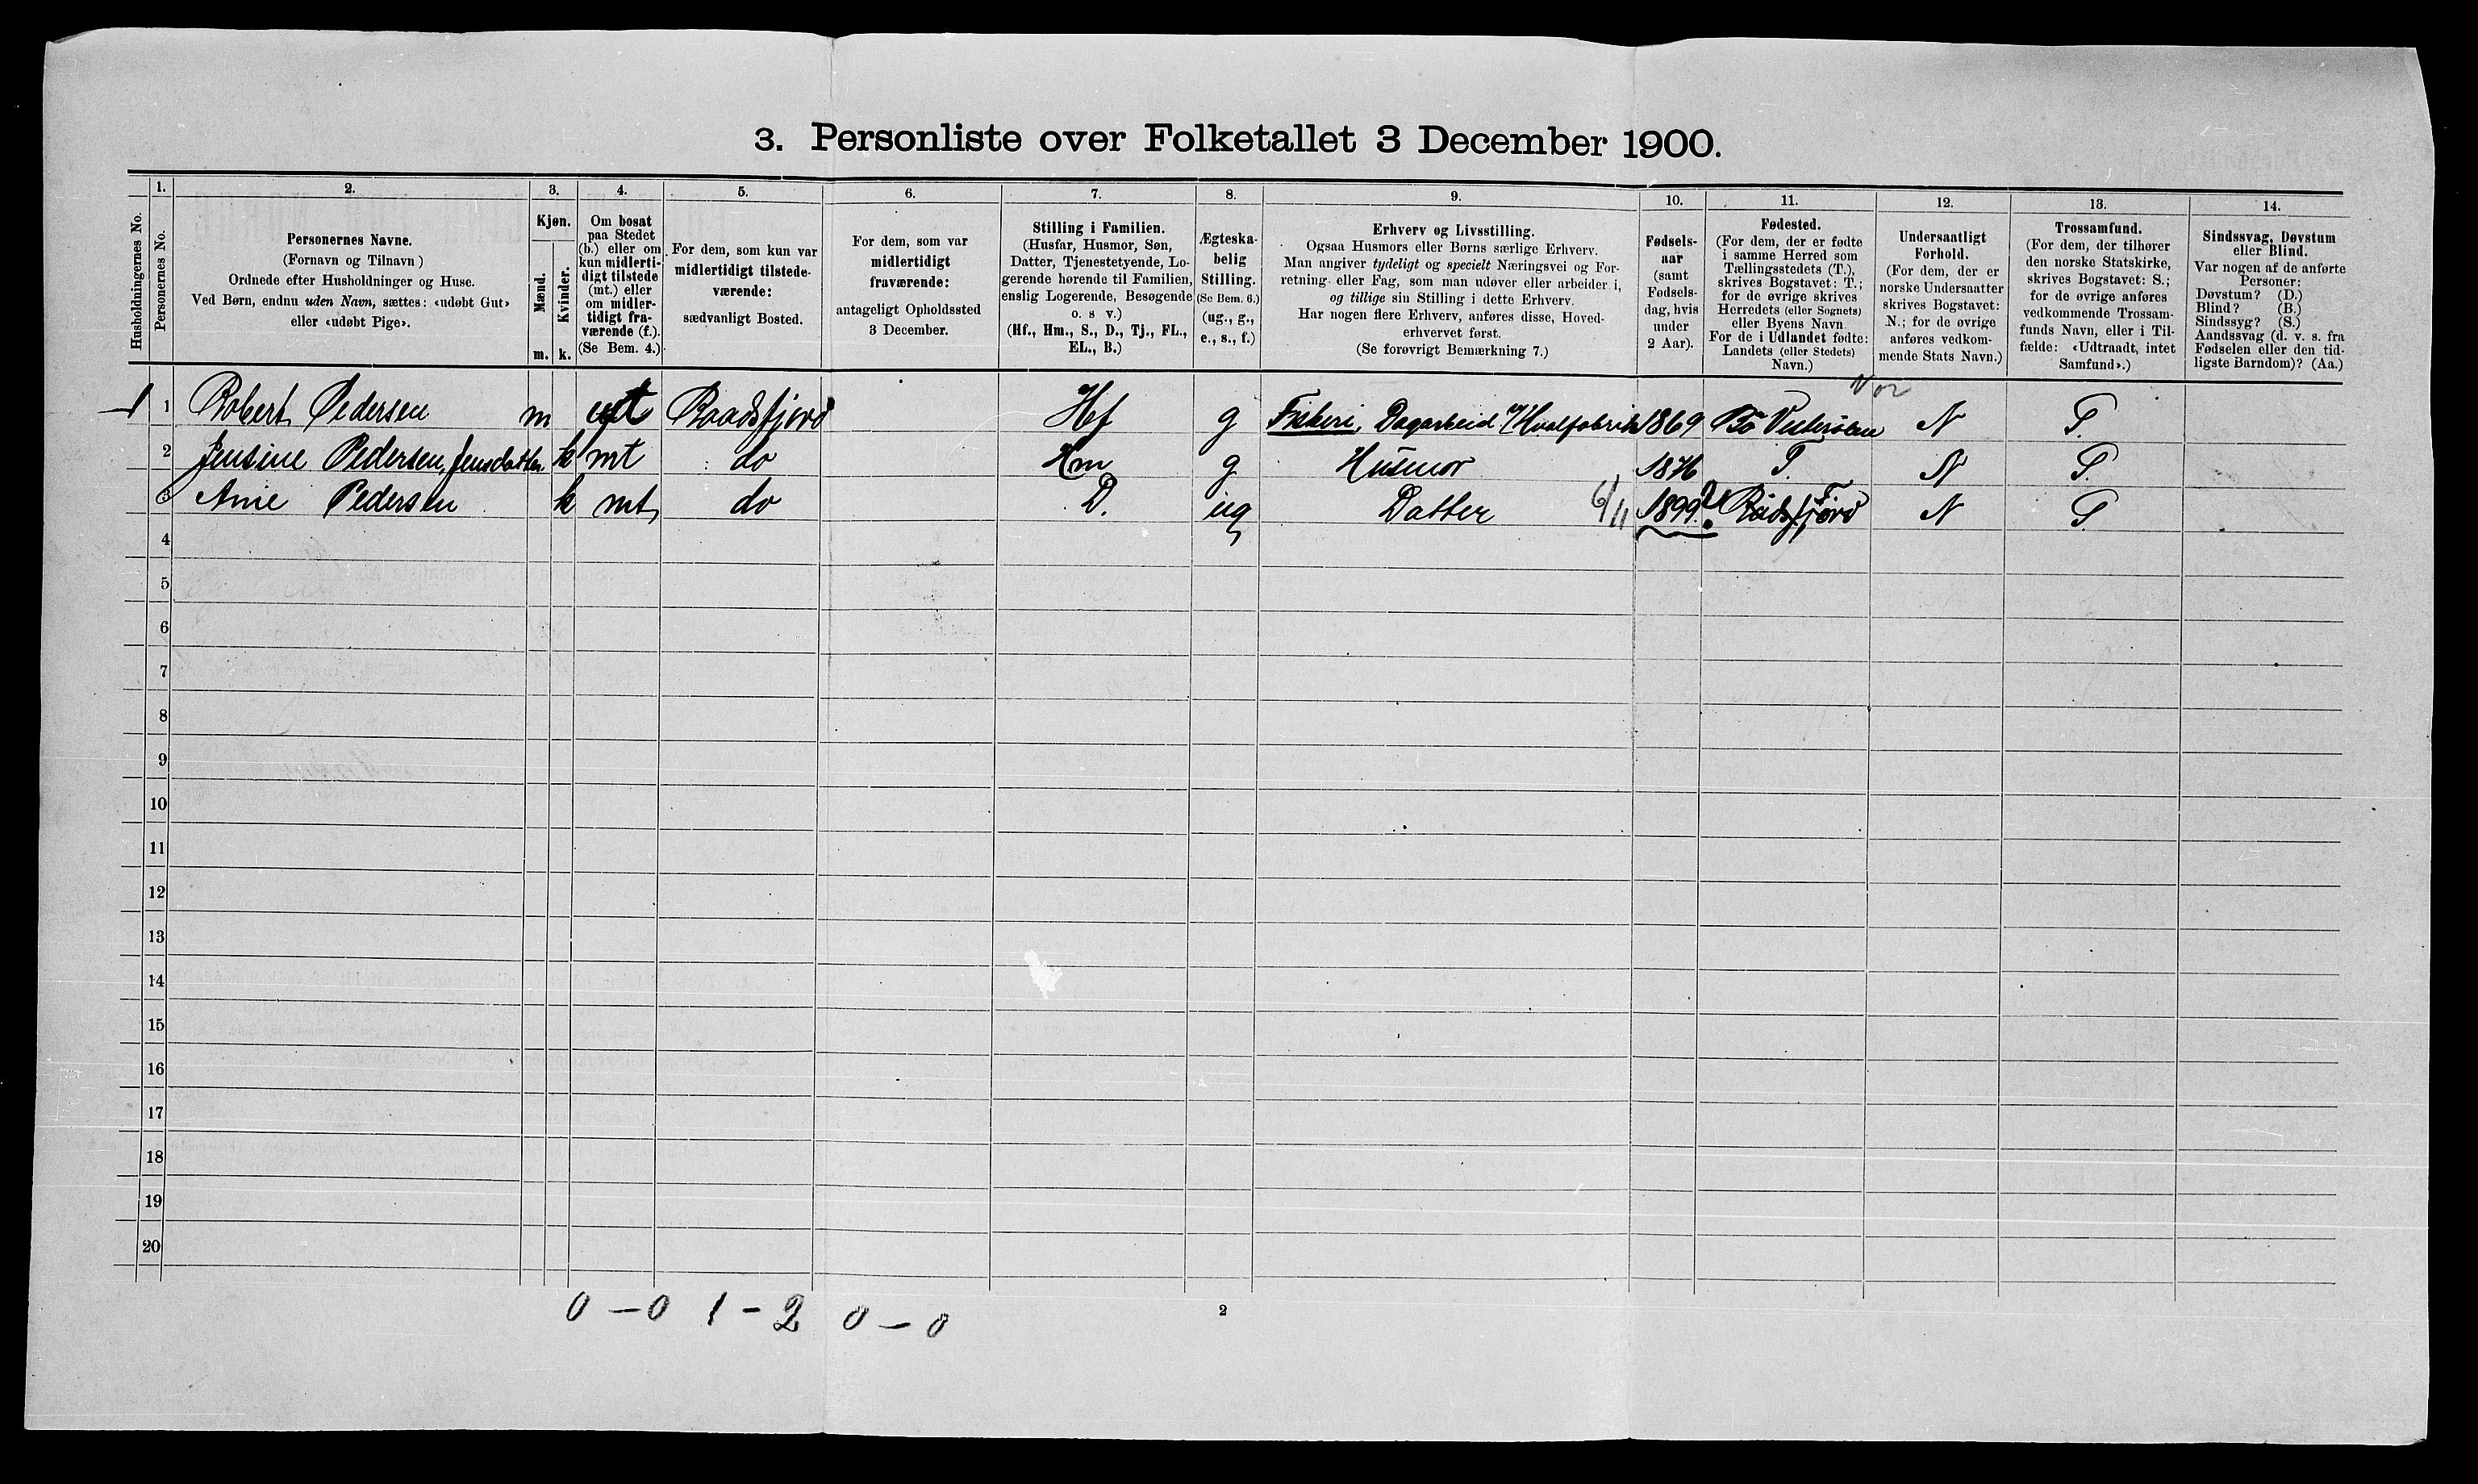 3. Personliste over Folketallet 3 December 1900.
Husholdningernes No.
1.
Personernes No.
2.
Personernes Navne.
(Fornavn og Tilnavn)
Ordnede efter Husholdninger og Huse.
Ved Børn, endnu uden Navn, sættes: «udøbt Gut»
eller «udøbt Pige».
3.
Kjøn.
Mænd.
Kvinder.
m. k.
4.
Om bosat
paa Stedet
(b.) eller om
kun midlerti-
digt tilstede
(mt.) eller
om midler-
tidigt fra-
værende (f.).
(Se Bem. 4.)
5.
For dem, som kun var
midlertidigt tilstede-
værende:
sædvanligt Bosted.
6.
For dem, som var
midlertidigt
fraværende:
antageligt Opholdssted
3 December.
7.
Stilling i Familien.
(Husfar, Husmor, Søn,
Datter, Tjenestetyende, Lo-
gerende hørende til Familien,
enslig Logerende, Besøgende
o. s v.)
(Hf., Hm., S., D., Tj., FL.,
EL., B.)
8.
Ægteska-
belig
Stilling.
(Se Bem. 6.)
(ug., g.,
e., s., f.)
9.
Erhverv og Livsstilling.
Ogsaa Husmors eller Børns særlige Erhverv.
Man angiver tydeligt og specielt Næringsvei og For-
retning eller Fag, som man udøver eller arbeider i,
og tillige sin Stilling i dette Erhverv.
Har nogen flere Erhverv, anføres disse, Hoved-
erhvervet først.
(Se forøvrigt Bemærkning 7.)
10.
Fødsels-
aar
(samt
Fødsels-
dag, hvis
under
2 Aar).
11.
Fødested.
(For dem, der er fødte
i samme Herred som
Tællingsstedets (T.),
skrives Bogstavet: T.;
for de øvrige skrives
Herredets (eller Sognets)
eller Byens Navn
For de i Udlandet fødte:
Landets (eller Stedets)
Navn.)
12.
Undersaatligt
Forhold.
(For dem, der er
norske Undersaatter
skrives Bogstavet:
N.; for de øvrige
anføres vedkom-
mende Stats Navn.)
13.
Trossamfund.
(For dem, der tilhører
den norske Statskirke,
skrives Bogstavet: S.;
for de øvrige anføres
vedkommende Trossam-
funds Navn, eller i Til-
fælde: «Udtraadt, intet
Samfund».)
14.
Sindssvag, Døvstum
eller Blind.
Var nogen af de anførte
Personer:
Døvstum? (D.)
Blind? (B.)
Sindssyg? (S.)
Aandssvag (d. v. s. fra
Fødselen eller den tid-
ligste Barndom)? (Aa.)
Nor
1 1 Robert Pedersen m mt Raadsfjord Hf g Fiskeri, Dagarbeid Hvalfabrik 1869 Bø Vesteraalen N S.
2 Jensine Pedersen, Jensdatter k mt do Hm g Husmor 1876 T. N S.
3 Ane Pedersen k mt do D. ug Datter 6/11 1899? Raadsfjord N S
4
5
6
7
8
9
10
11
12
13
14
15
16
17
18
19
20
0 – 0 1 – 2 0 – 0
2